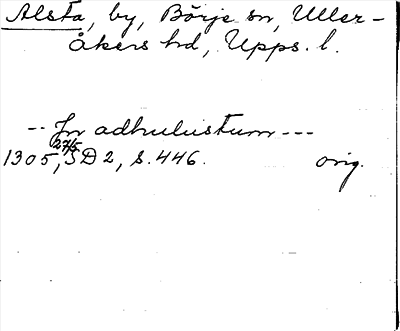 Alsta, by, Börje sn, Uller-
åkers hd, Upps. l.
-- Jn adhulustum ---
27/5
1305, SD 2, s. 446. orig.